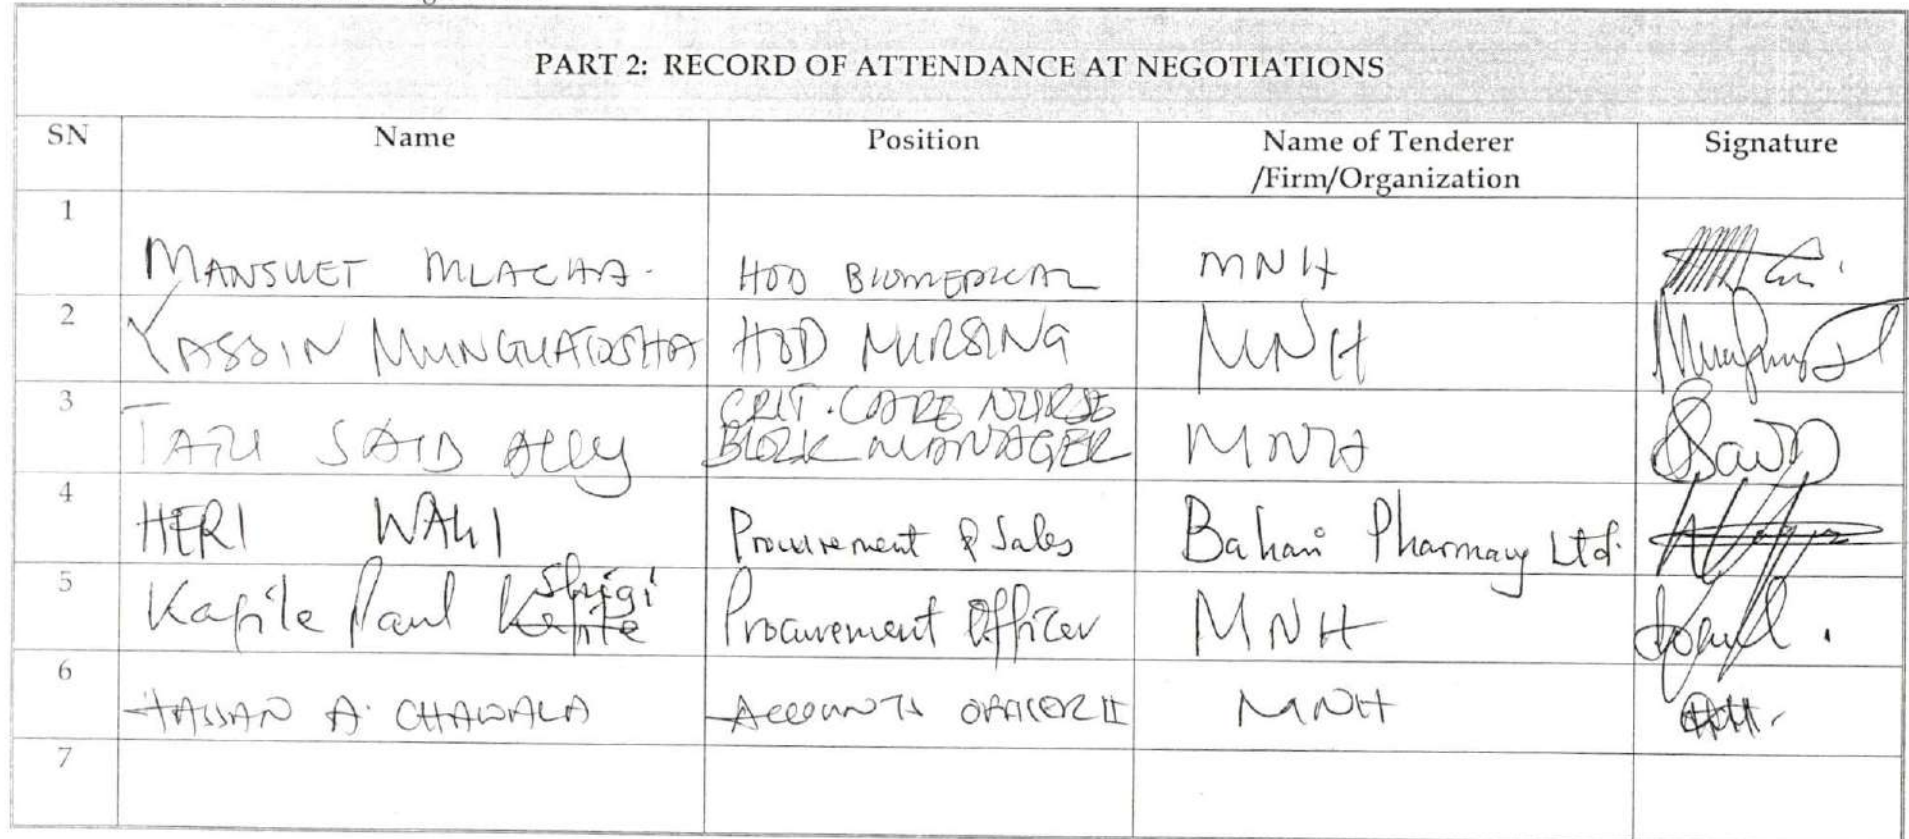 PART 2: RECORD OF ATTENDANCE AT NEGOTIATIONS
SN Name Position Name of Tenderer Signature
/Firm/Organization
1
MANSUET MLACHA. HOD BIOMEDICAL MNH
2
YASSIN MUNGUATOSHA HOD NURSING MNH
3
CRIT. CARE NURSE
TATU SAID ALLY BLOCK MANAGER MNH
4
HERI WALI Procurement & Sales Bahari Pharmacy Ltd.
5
Shigi
Kapile Paul Kapile Procurement Officer MNH
6
HASSAN A. CHAWALA ACCOUNTS OFFICER II MNH
7